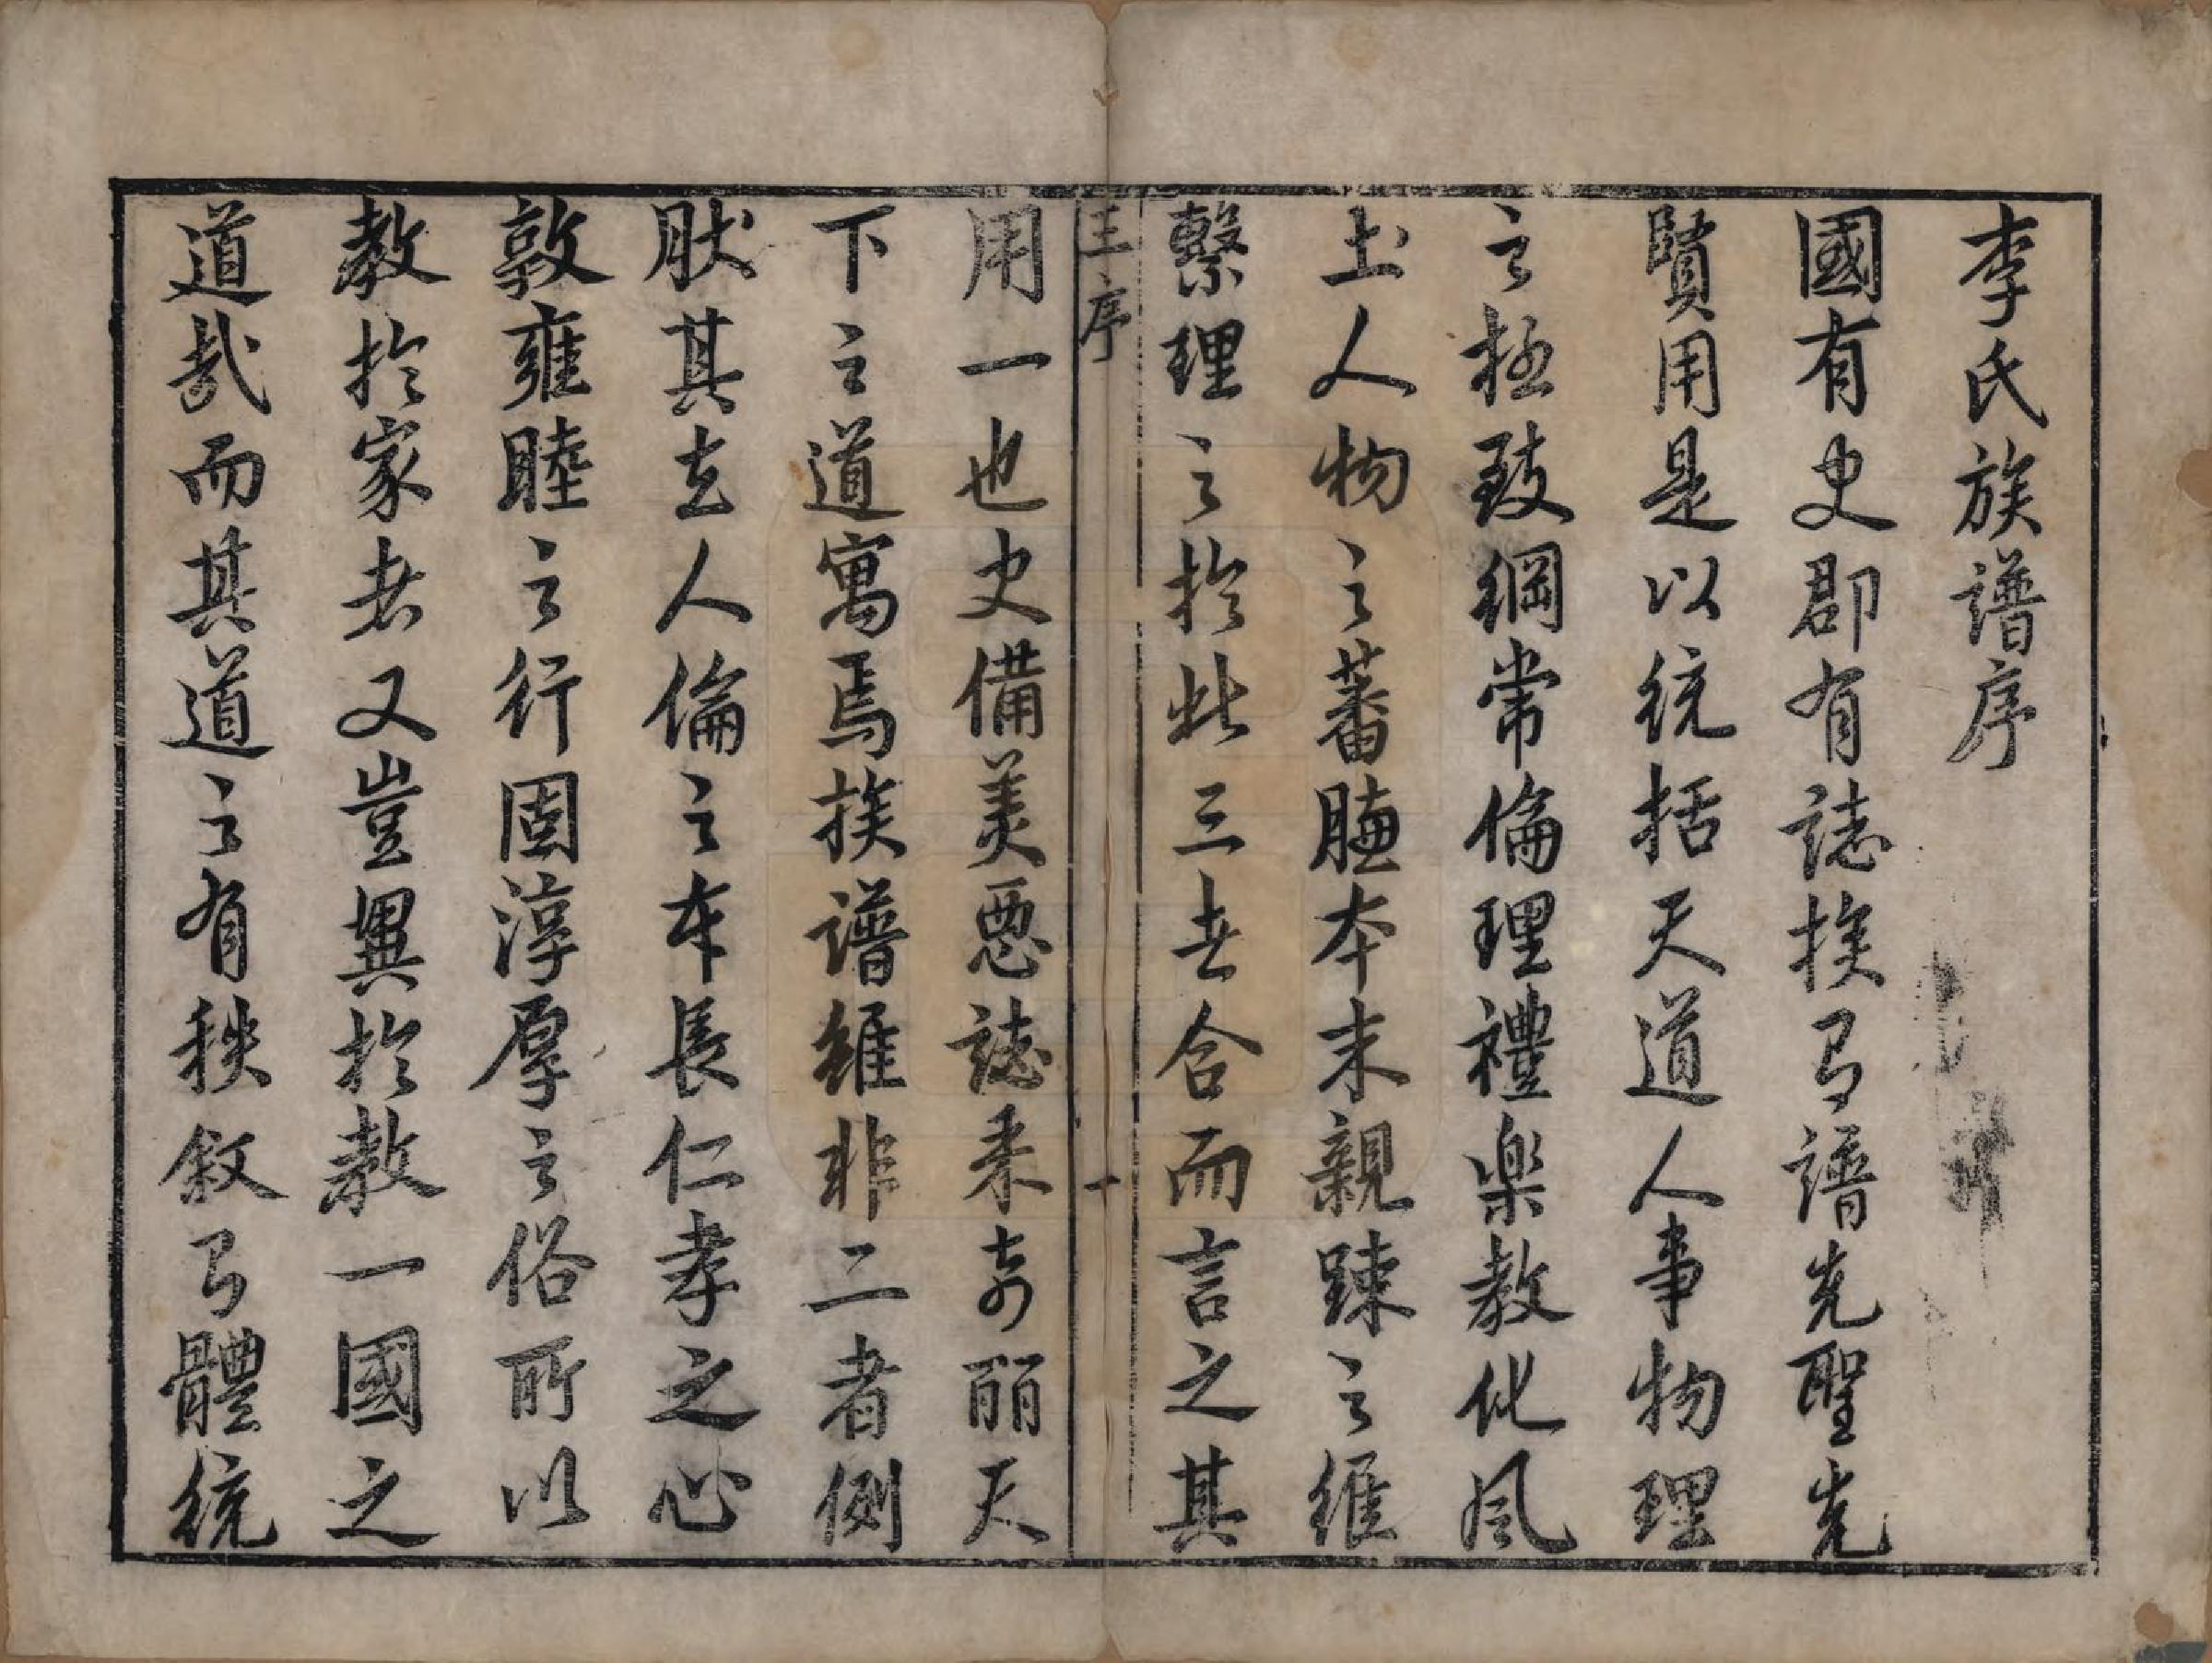 李氏族譜序
國有史郡有誌族有譜先聖先
賢用是以統括天道人事物理
之極致綱常倫理禮樂教化風
土人物之蕃䐜本末親踈之維
繫理之於此三者合而言之其
王序
一
用一也史備美惡誌采奇丽天
下之道寓焉族譜維非二者側
肰其立人倫之本長仁孝之心
敦雍睦之行固淳厚之俗所以
教於家者又豈異於教一國之
道哉而其道之有秩敘有體統